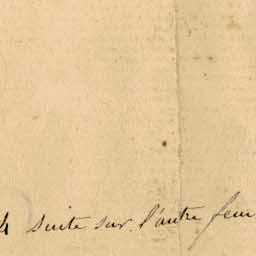 4 suite sur l'autre feui